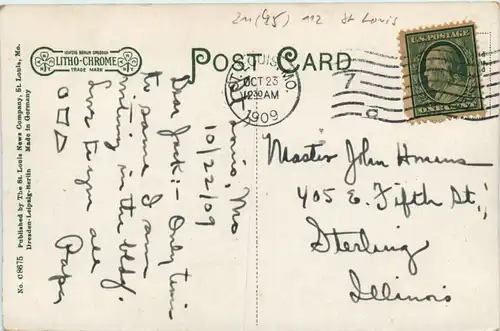 2m (95) 112 St Louis
LEIPZIG BERLIN DRESDEN
LITHO-CHROME
TRADE MARK
POST CARD
ST. LOUIS, MO.
OCT 23
12 30 AM
1909
7
U.S. POSTAGE
ONE CENT
No. C8675 Published by The St. Louis News Company, St. Louis, Mo.
Dresden-Leipzig-Berlin Made in Germany
St Louis, Mo
10/22/09
Dear Jack:- Only time
to same I am
writing in the bldg.
Love to you all
Papa
Master John Homans
405 E. Fifth St.,
Sterling
Illinois